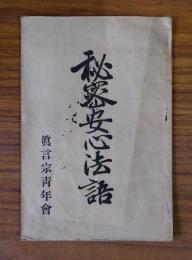 秘密安心法語
眞言宗青年會